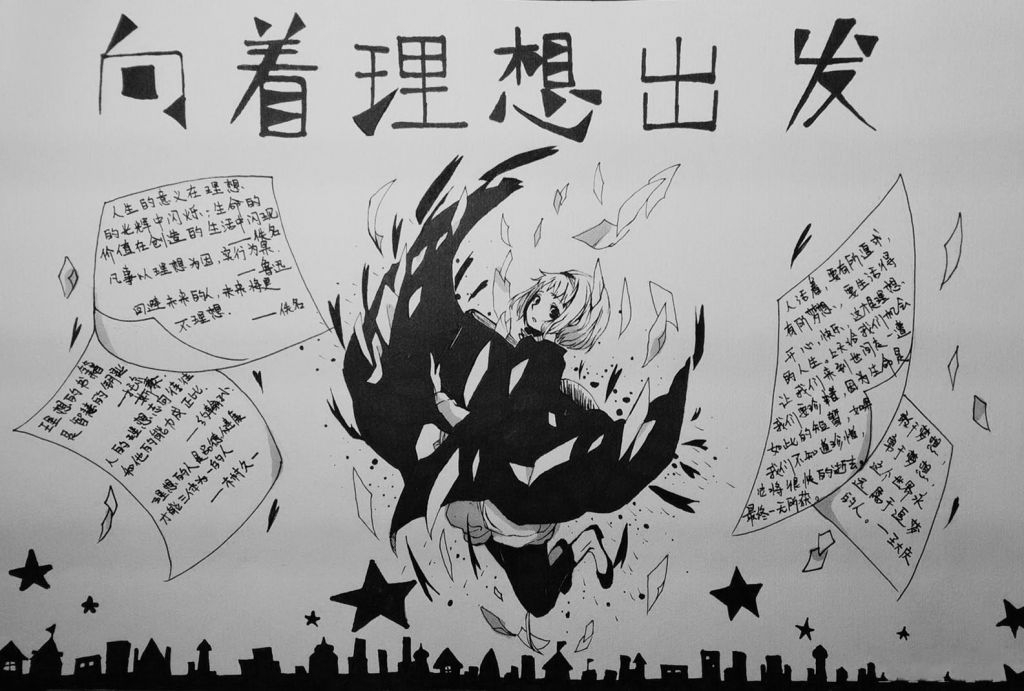 向着理想出发
人生的意义在理想
的光辉中闪烁;生命的
价值在创造的生活中闪现
——佚名
凡事以理想为因,实行为果.
——鲁迅
回避未来的人,未来将是
不理想.
——佚名
理想的书籍
是智慧的钥匙
人的理想志向往往
和他的能力成正比
理想的人是品德、健康
才能三位一体的人
——木村久一
人活着 要有所追求,
有所梦想, 要生活得
开心,快乐, 这才是理想
的人生。上天给我们机会
让我们来到世间走一遭
我们要珍惜, 因为生命是
如此的短暂, 如果
我们不知道珍惜,
它将很快的逝去,
最终一无所获。
敢于梦想
勇于梦想,
这个世界永
远属于追梦
的人。